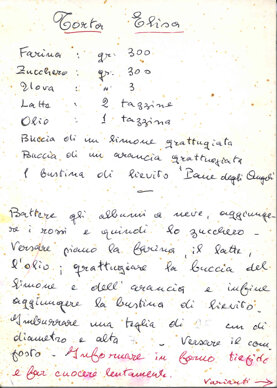 Torta Elisa
Farina : gr. 300
Zucchero : gr. 300
Uova : " 3
Latte : 2 tazzine
Olio : 1 tazzina
Buccia di un limone grattugiata
Buccia di un arancia grattugiata
1 bustina di lievito "Pane degli Angeli
Battere gli albumi a neve, aggiunge-
re i rossi e quindi lo zucchero.
Versare piano la farina, il latte,
l'olio; grattugiare la buccia del
limone e dell'arancia e infine
aggiungere la bustina di lievito.
Imburrare una teglia di cm di
diametro e alta . Versare il com
posto. Infornare in forno tiepido
e far cuocere lentamente.
Varianti →